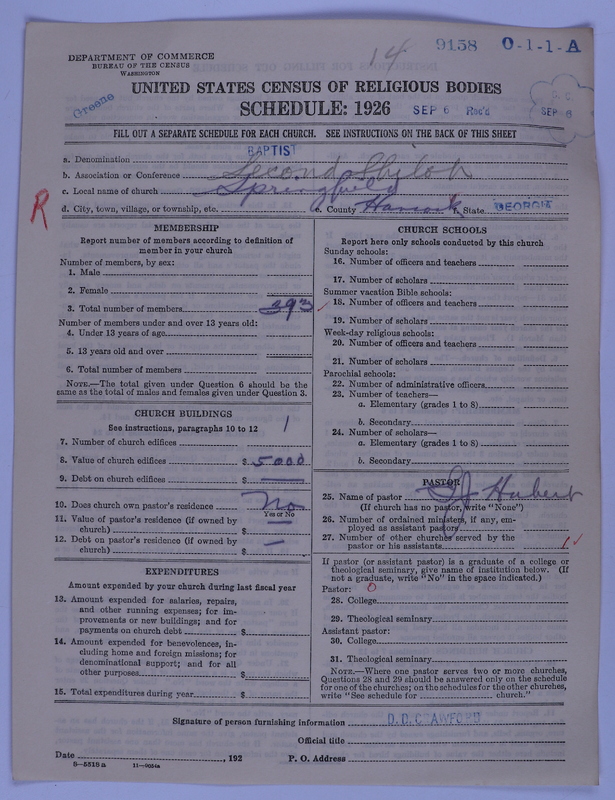 14 9158 O-1-1-A
DEPARTMENT OF COMMERCE
BUREAU OF THE CENSUS
WASHINGTON
Greene
UNITED STATES CENSUS OF RELIGIOUS BODIES
SCHEDULE: 1926 SEP 6 Rec'd SEP 8
FILL OUT A SEPARATE SCHEDULE FOR EACH CHURCH. SEE INSTRUCTIONS ON THE BACK OF THIS SHEET
a. Denomination BAPTIST
b. Association or Conference Second Shiloh
c. Local name of church Springfield
R
d. City, town, village, or township, etc. e. County Hancock f. State GEORGIA
MEMBERSHIP
Report number of members according to definition of
member in your church
Number of members, by sex:
1. Male
2. Female
3. Total number of members 393
Number of members under and over 13 years old:
4. Under 13 years of age
5. 13 years old and over
6. Total number of members
NOTE.—The total given under Question 6 should be the
same as the total of males and females given under Question 3.
CHURCH BUILDINGS
See instructions, paragraphs 10 to 12
7. Number of church edifices 1
8. Value of church edifices $ 5000
9. Debt on church edifices $
10. Does church own pastor's residence No
Yes or No
11. Value of pastor's residence (if owned by
church) $
12. Debt on pastor's residence (if owned by
church) $
EXPENDITURES
Amount expended by your church during last fiscal year
13. Amount expended for salaries, repairs,
and other running expenses; for im-
provements or new buildings; and for
payments on church debt $
14. Amount expended for benevolences, in-
cluding home and foreign missions; for
denominational support; and for all
other purposes $
15. Total expenditures during year $
CHURCH SCHOOLS
Report here only schools conducted by this church
Sunday schools:
16. Number of officers and teachers
17. Number of scholars
Summer vacation Bible schools:
18. Number of officers and teachers
19. Number of scholars
Week-day religious schools:
20. Number of officers and teachers
21. Number of scholars
Parochial schools:
22. Number of administrative officers
23. Number of teachers—
a. Elementary (grades 1 to 8)
b. Secondary
24. Number of scholars—
a. Elementary (grades 1 to 8)
b. Secondary
PASTOR
25. Name of pastor Hubert
(If church has no pastor, write "None")
26. Number of ordained ministers, if any, em-
ployed as assistant pastor
27. Number of other churches served by the
pastor or his assistants 1
If pastor (or assistant pastor) is a graduate of a college or
theological seminary, give name of institution below. (If
not a graduate, write "No" in the space indicated.)
Pastor: 0
28. College
29. Theological seminary
Assistant pastor:
30. College
31. Theological seminary
NOTE.—Where one pastor serves two or more churches,
Questions 28 and 29 should be answered only on the schedule
for one of the churches; on the schedules for the other churches,
write "See schedule for church."
Signature of person furnishing information D. D. CRAWFORD
Official title
Date , 192 P. O. Address
8—5518a 11—9054a